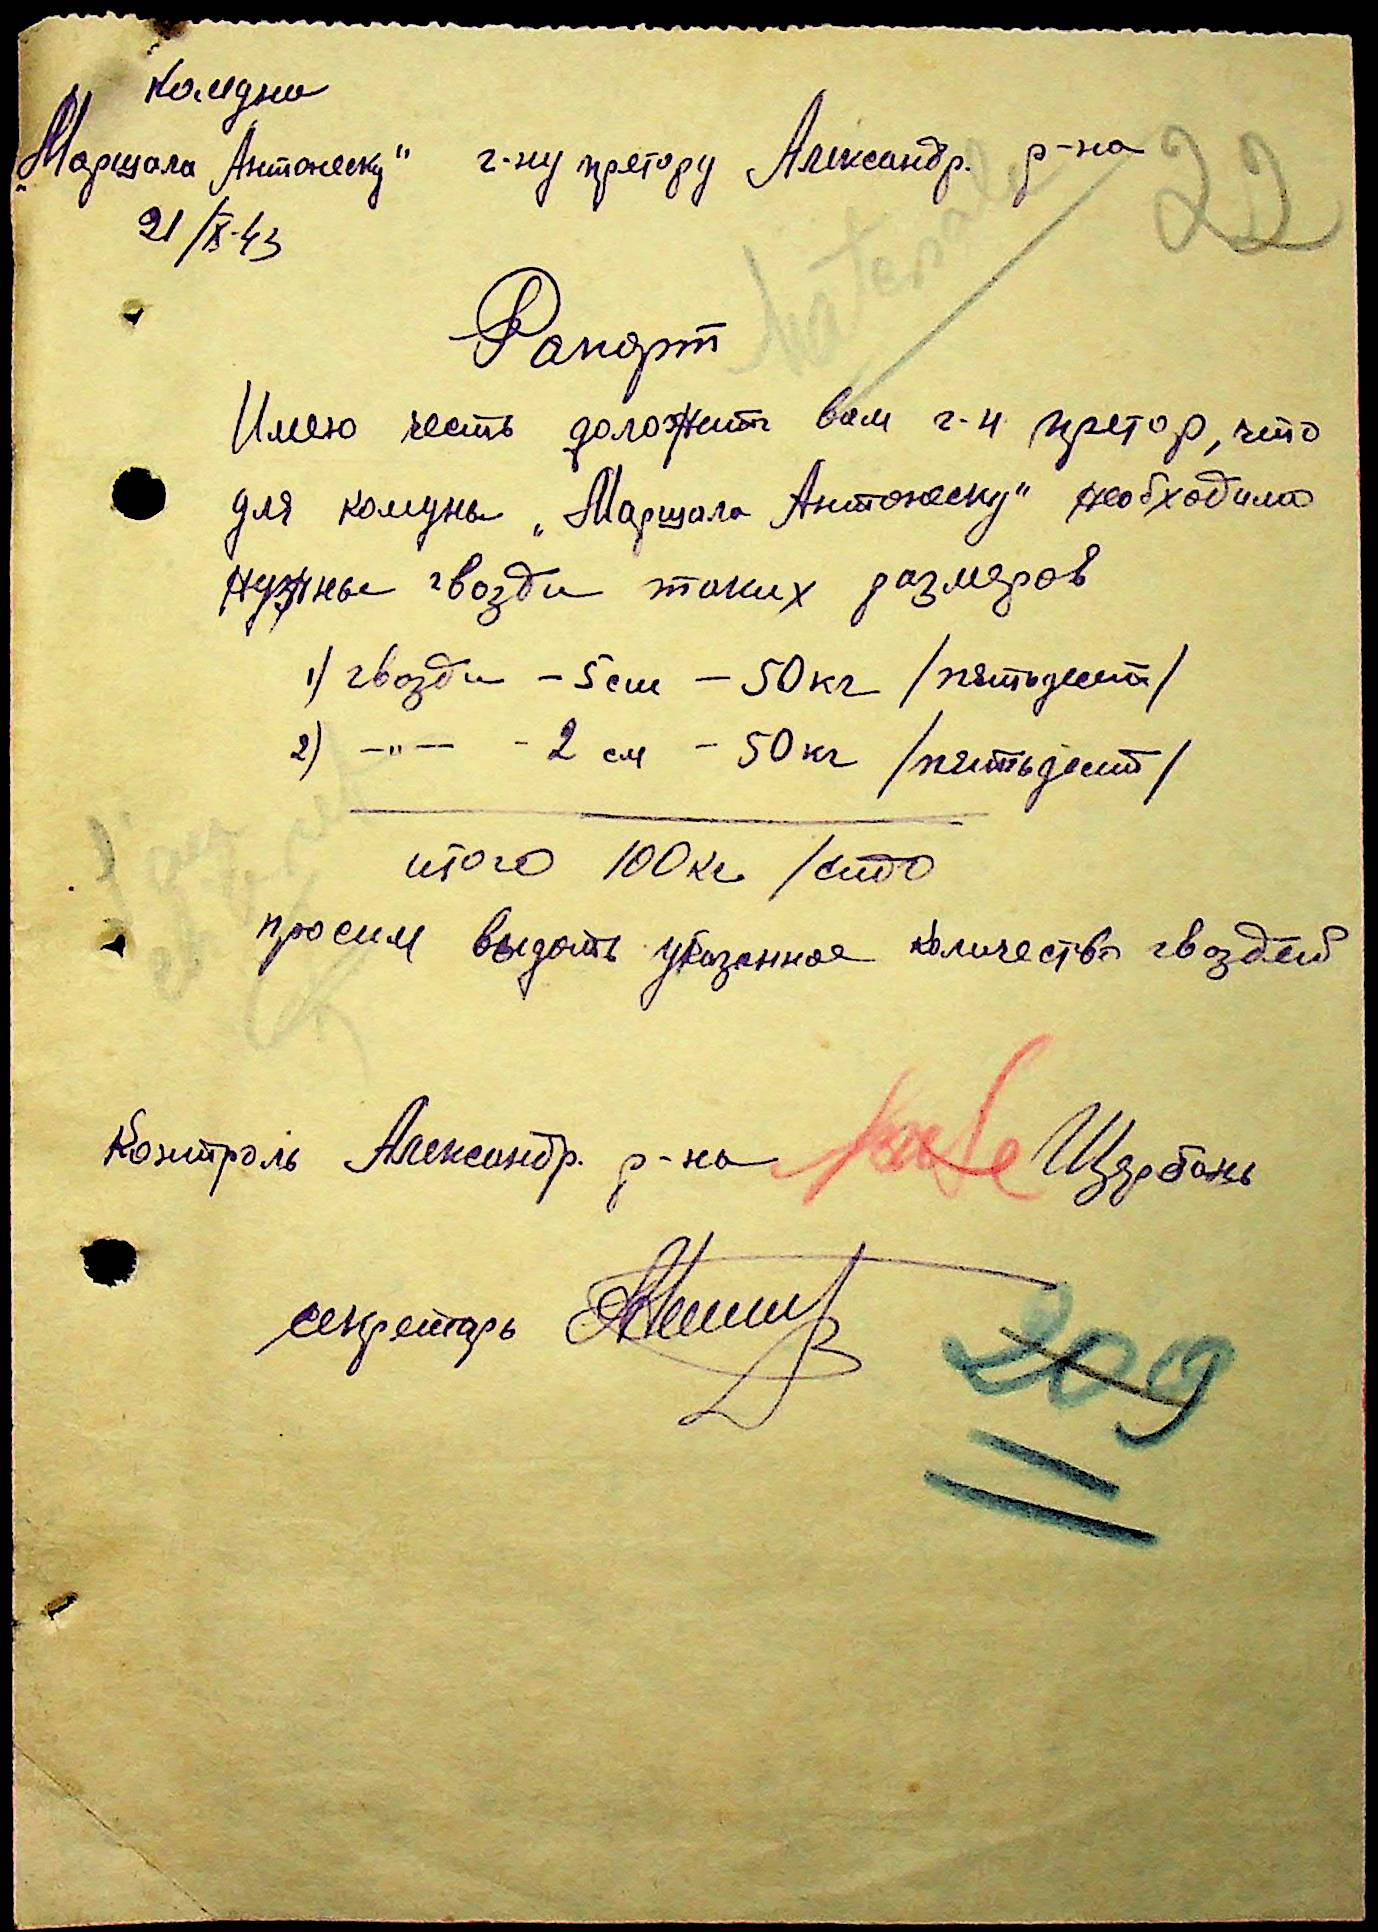 комуны
„Маршала Антонеску" г-ну претору Александр. р-на
22
21/IX-43
Materiale
Рапорт
Имею честь доложить вам г-н претор, что
для комуны „Маршала Антонеску" необходимо
нужны гвозди таких размеров
1) гвозди – 5 см – 50 кг /пятьдесят/
2) –"– - 2 см – 50 кг /пятьдесят/
итого 100 кг /сто
просим выдать указанное количество гвоздей
Контроль Александр. р-на Щербань
секретарь
209